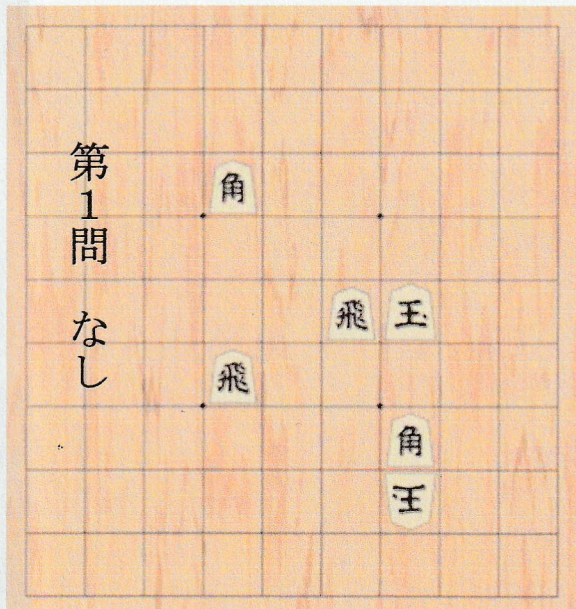 第1問 なし
角
飛 玉
飛
角
王